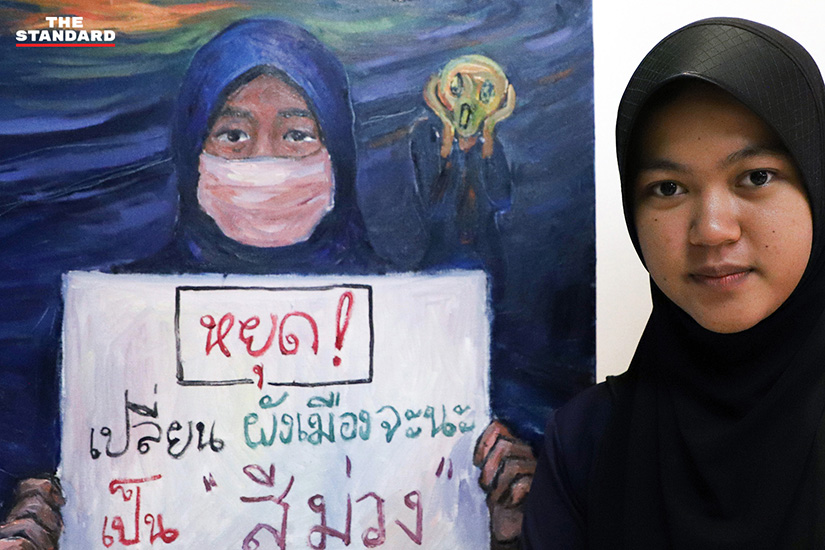 THE
STANDARD
หยุด!
เปลี่ยน ผังเมืองจะนะ
เป็น "สีม่วง"